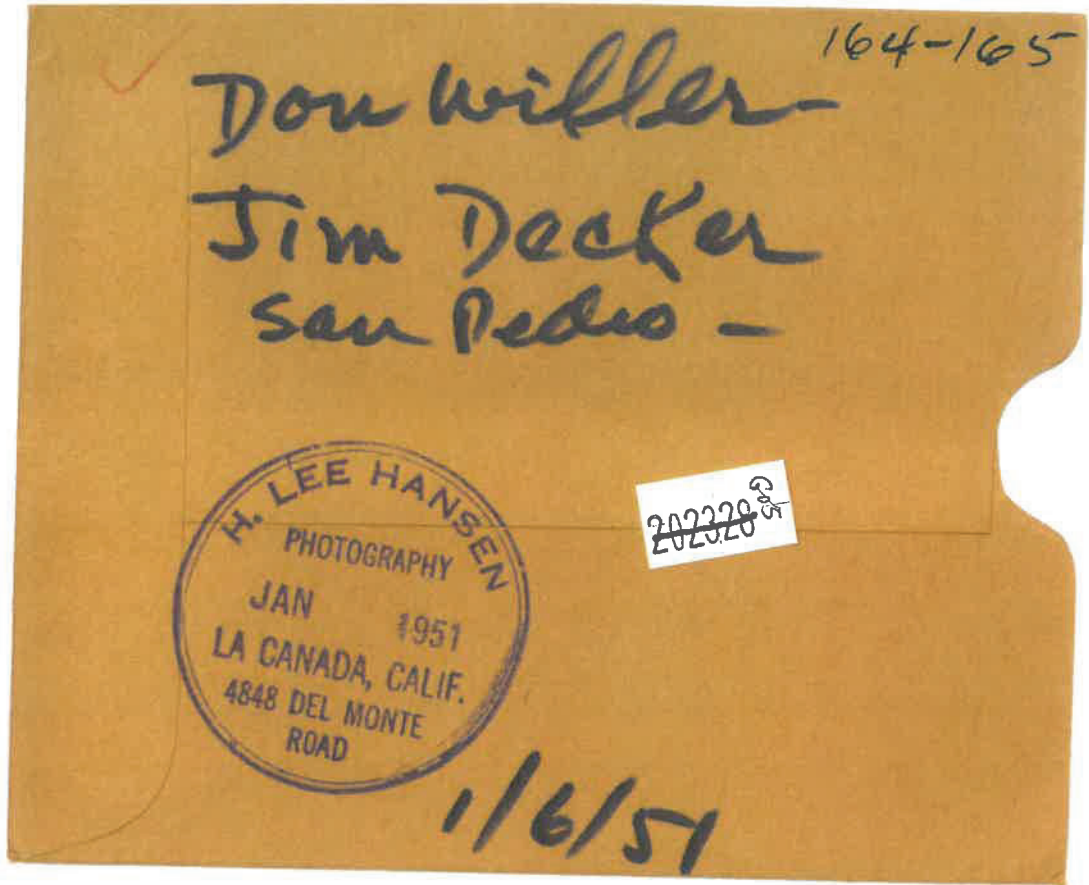 164-165
Don Willer-
Jim Decker
San Pedro -
H. LEE HANSEN
PHOTOGRAPHY
JAN 1951
LA CANADA, CALIF.
4848 DEL MONTE
ROAD
202328
1/6/51